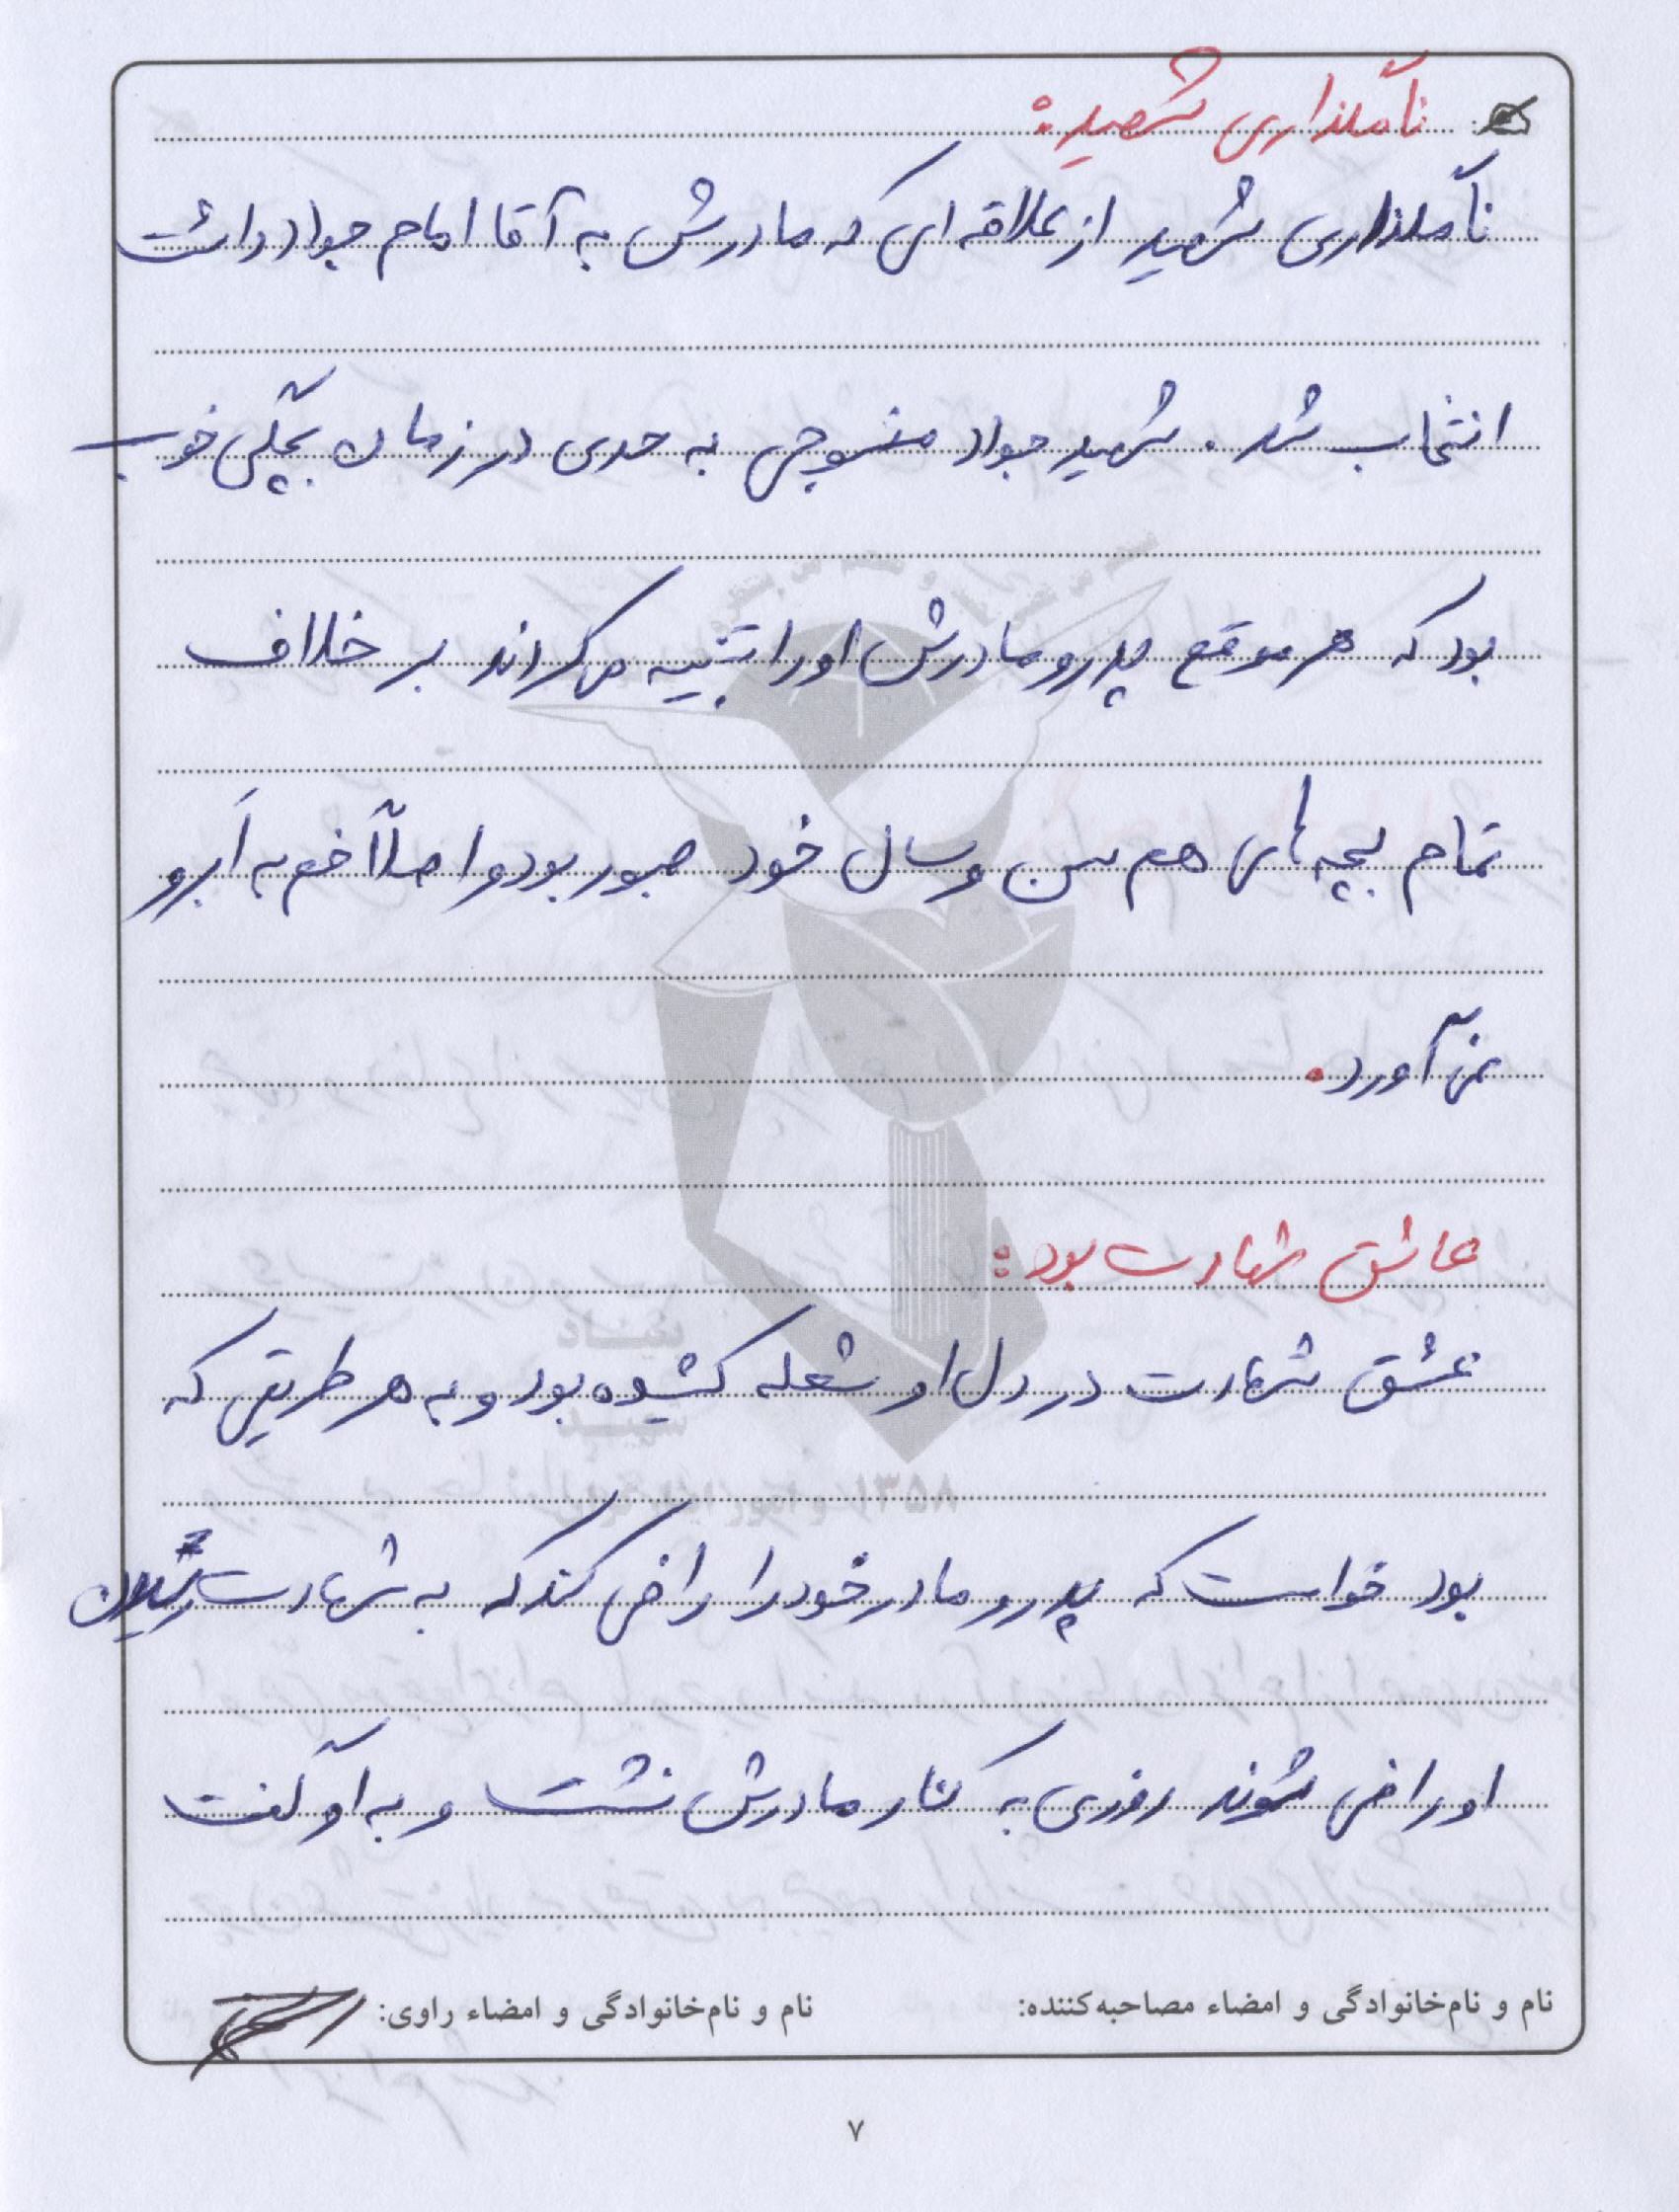 نامگذاری شهید:
نامگذاری شهید از علاقه ای که مادرش به آقا امام جواد داشت
انتخاب شد. شهید جواد منسوجی به حدی در زمان بچگی خوب
بود که هر موقع پدر و مادرش او را تنبیه می کردند بر خلاف
تمام بچه های هم سن و سال خود صبور بود و اصلاً خم به اَبرو
نمی آورد.
عاشق شهادت بود:
عشق شهادت در دل او شعله کشیده بود و به هر طریقی که
بود خواست که پدر و مادر خود را راضی کند که به شهادت رسیدن
او راضی شوند روزی به کنار مادرش نشست و به او گفت
نام و نام‌خانوادگی و امضاء مصاحبه‌کننده:
نام و نام‌خانوادگی و امضاء راوی:
۷